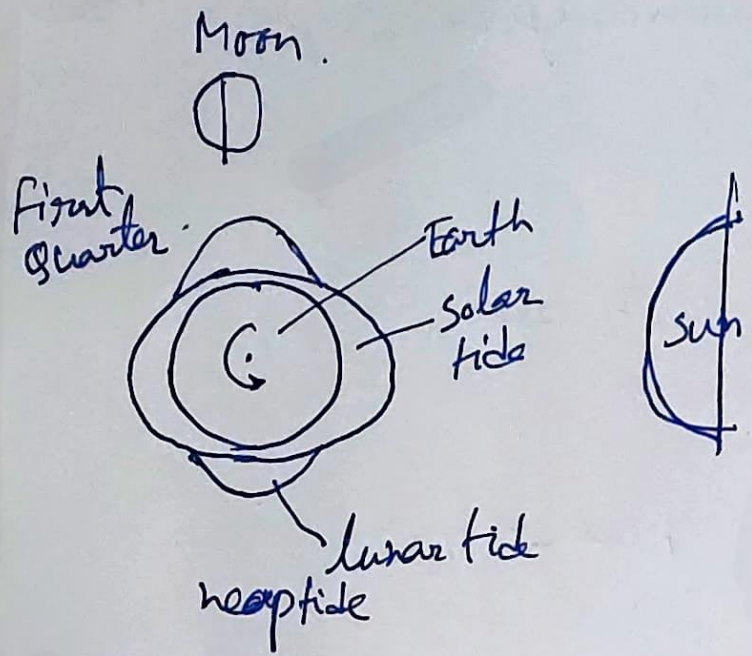 Moon.
First
Quarter.
Earth
Solar
tide
Sun
lunar tide
neaptide